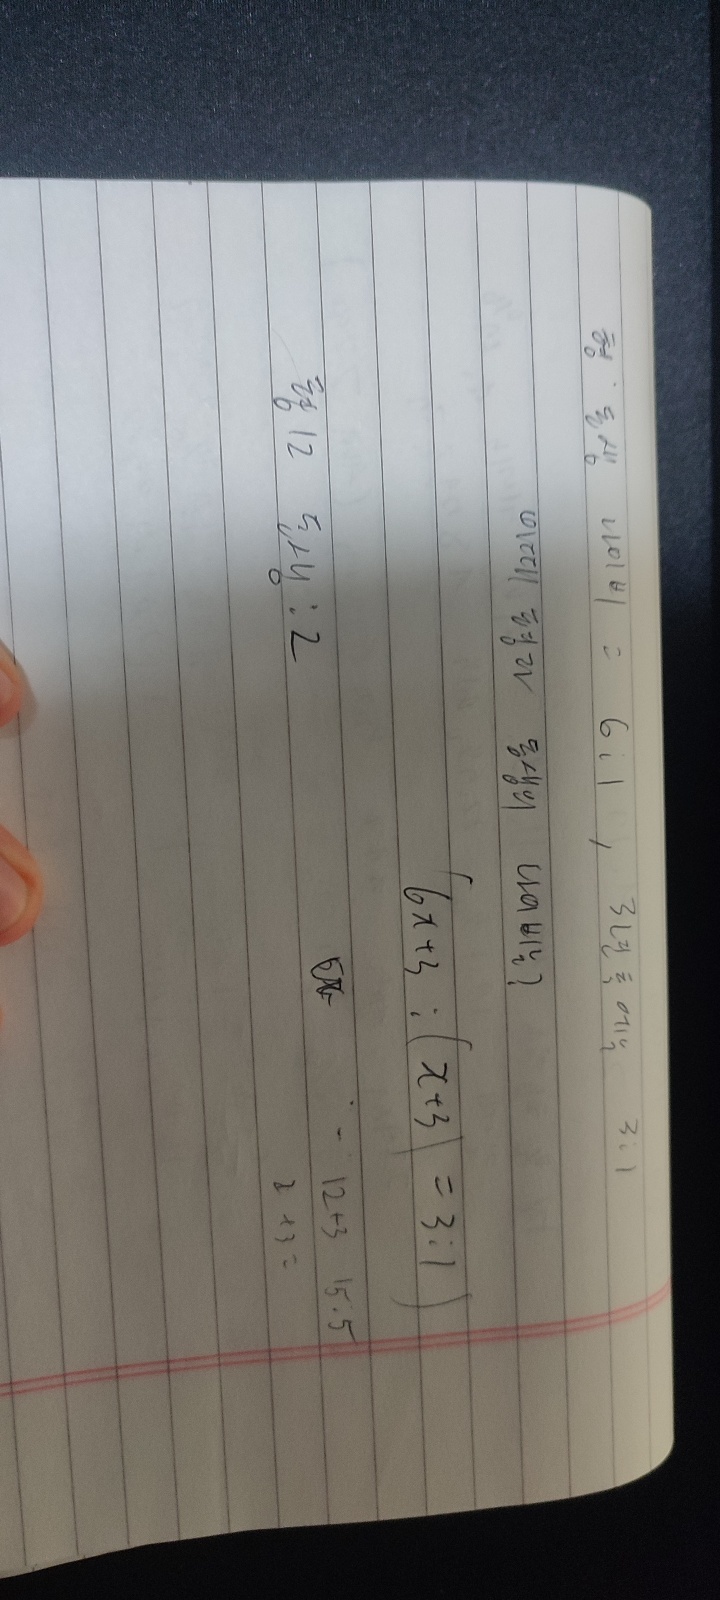 형 : 동생 나이비 = 6:1 , 3년후에는 3:1
이때 형과 동생의 나이비는?
(6x+3 : (x+3) = 3:1)
- 12+3 15:5
형 12 동생 : 2
2+3=